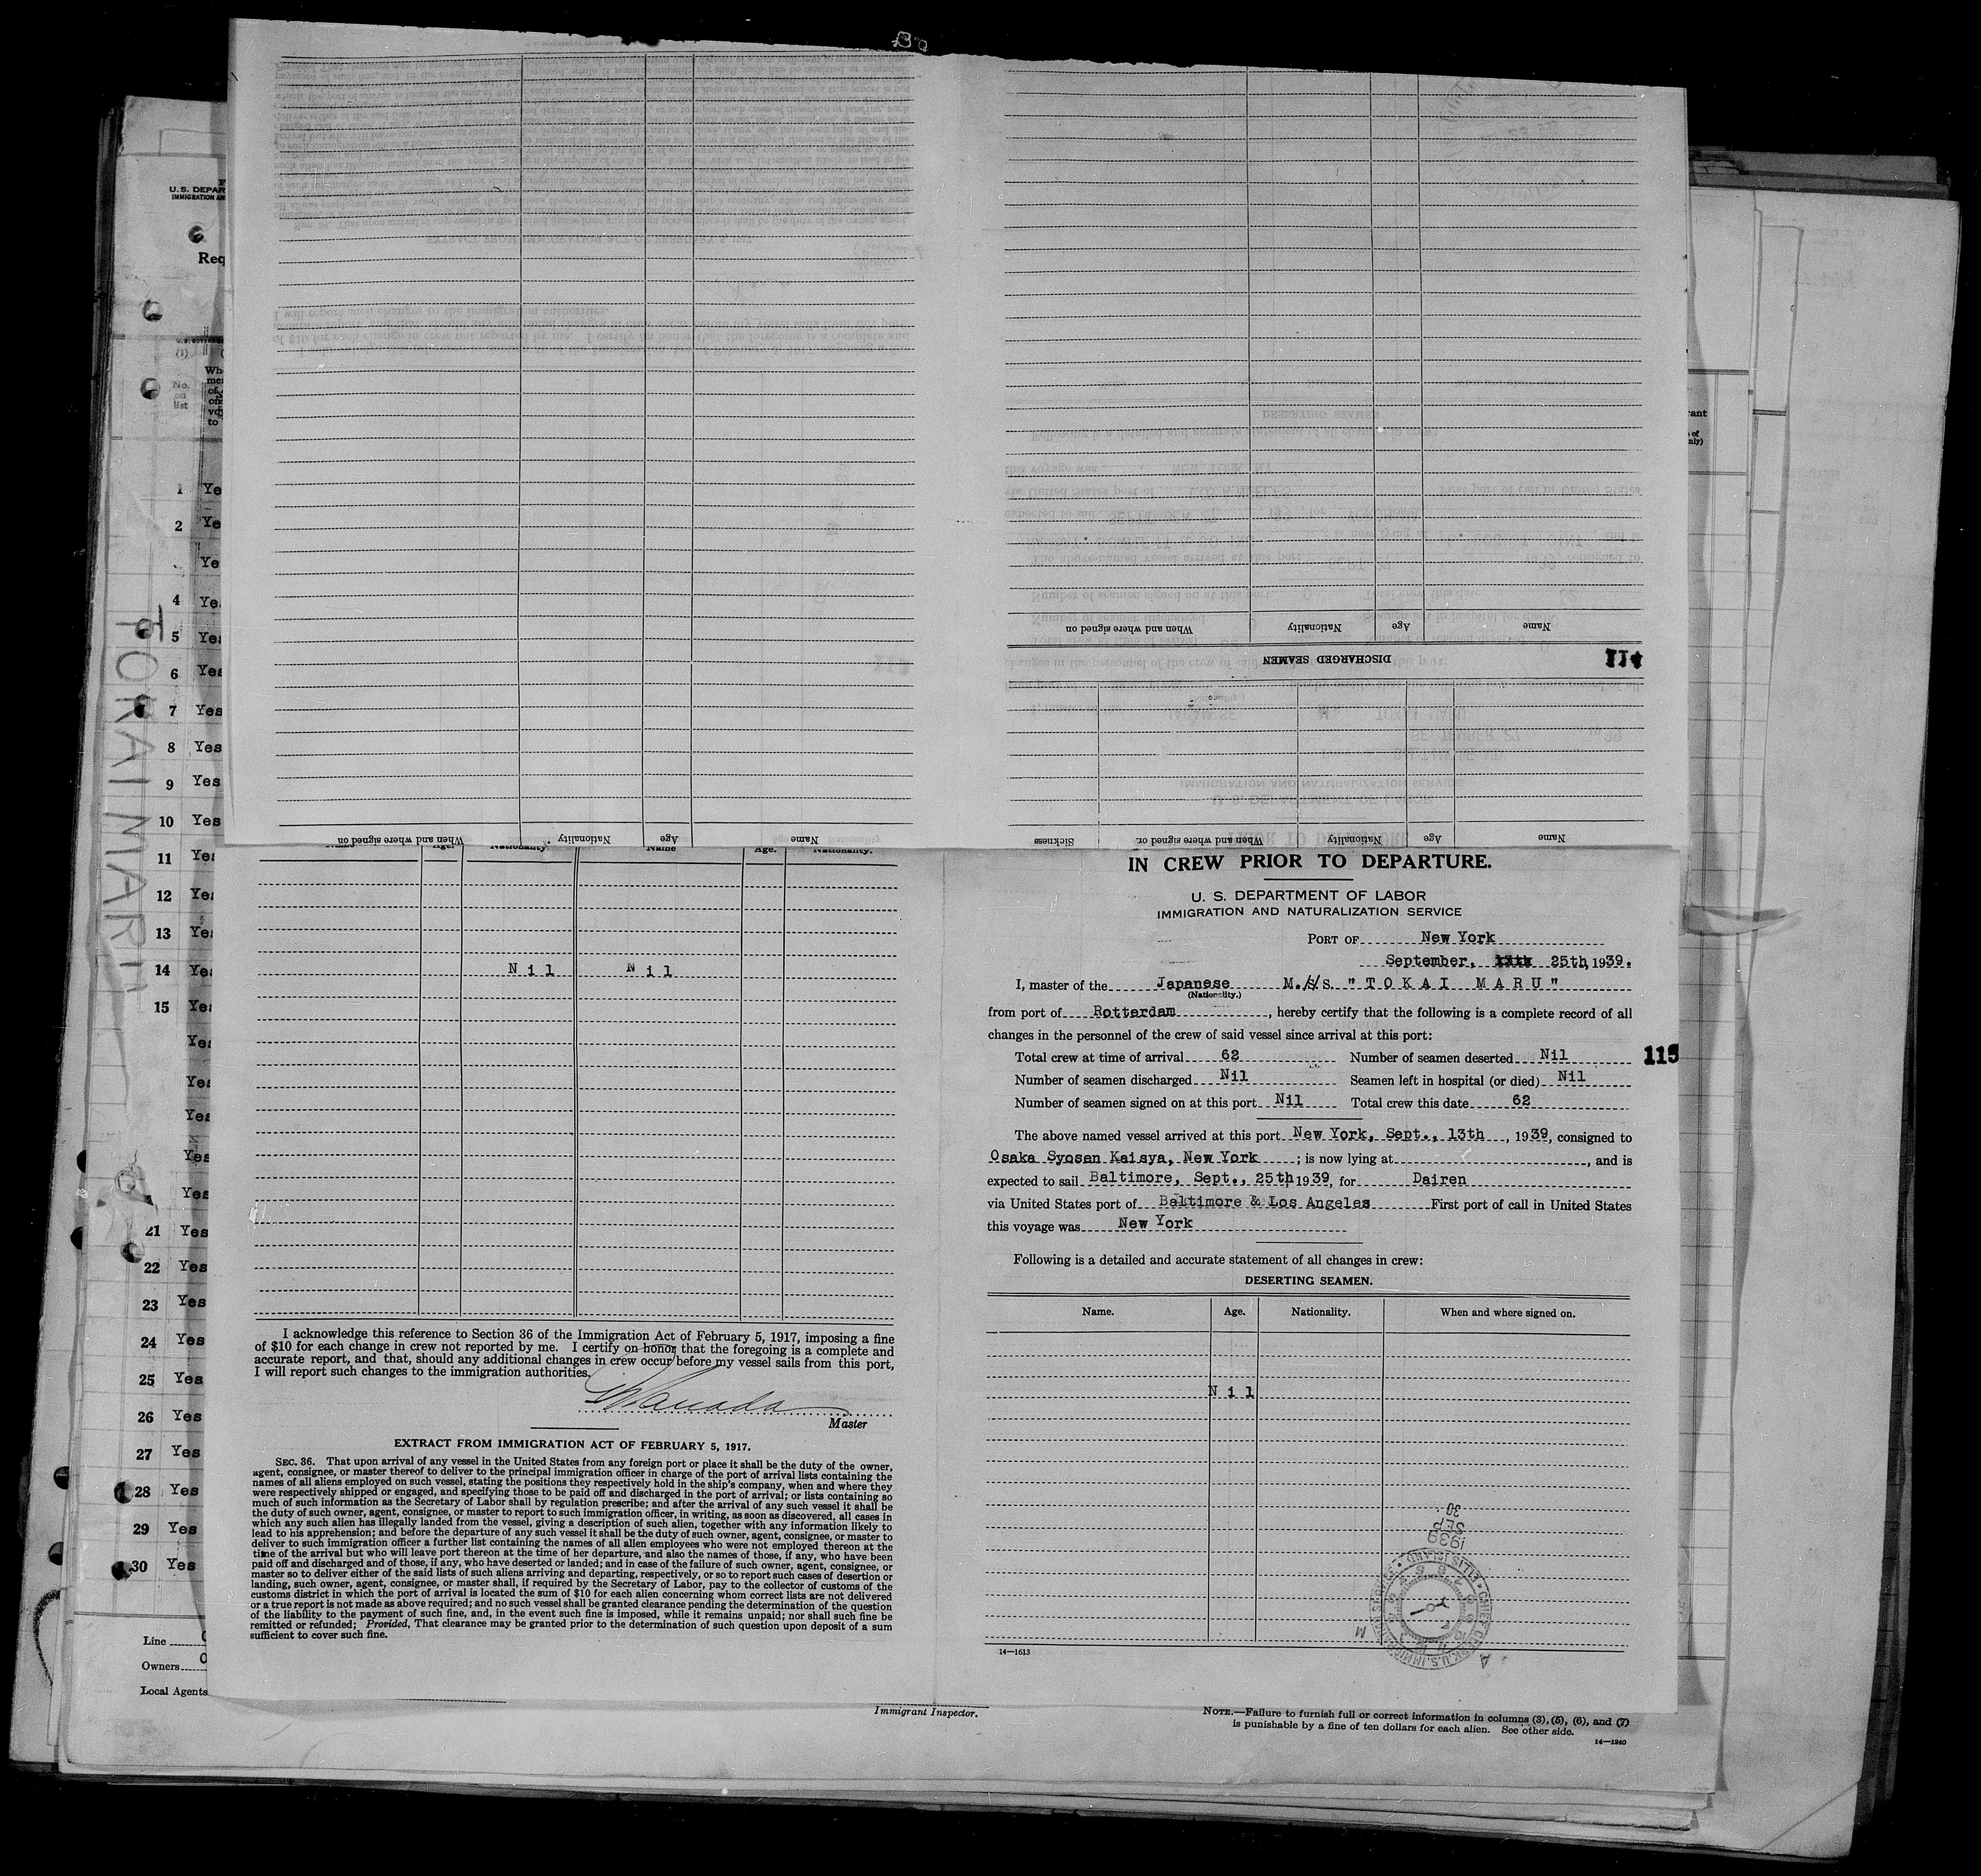 U.S. DEPAR
IMMIGRATION AN
Req
(1)
No.
on
list
Wh
1 Ye
2 Ye
Ye
4 Ye
5 Yes
6 Yes
7 Yes
8 Yes
9 Yes
10 Yes
11 Yes
12 Yes
13 Yes
14 Yes
15 Yes
Yes
Yes
Yes
Yes
Yes
21 Yes
22 Yes
23 Yes
24 Yes
25 Yes
26 Yes
27 Yes
28 Yes
29 Yes
30 Yes
Line
Owners
Local Agents
TOKAI MARU
Name Age Nationality When and where signed on
DISCHARGED SEAMEN
114
Name Age Nationality When and where signed on Sickness
Name Age Nationality When and where signed on
Age. Nationality. Name Age. Nationality.
Nil Nil
I acknowledge this reference to Section 36 of the Immigration Act of February 5, 1917, imposing a fine
of $10 for each change in crew not reported by me. I certify on honor that the foregoing is a complete and
accurate report, and that, should any additional changes in crew occur before my vessel sails from this port,
I will report such changes to the immigration authorities.
Master
EXTRACT FROM IMMIGRATION ACT OF FEBRUARY 5, 1917.
SEC. 36. That upon arrival of any vessel in the United States from any foreign port or place it shall be the duty of the owner,
agent, consignee, or master thereof to deliver to the principal immigration officer in charge of the port of arrival lists containing the
names of all aliens employed on such vessel, stating the positions they respectively hold in the ship's company, when and where they
were respectively shipped or engaged, and specifying those to be paid off and discharged in the port of arrival; or lists containing so
much of such information as the Secretary of Labor shall by regulation prescribe; and after the arrival of any such vessel it shall be
the duty of such owner, agent, consignee, or master to report to such immigration officer, in writing, as soon as discovered, all cases in
which any such alien has illegally landed from the vessel, giving a description of such alien, together with any information likely to
lead to his apprehension; and before the departure of any such vessel it shall be the duty of such owner, agent, consignee, or master to
deliver to such immigration officer a further list containing the names of all alien employees who were not employed thereon at the
time of the arrival but who will leave port thereon at the time of her departure, and also the names of those, if any, who have been
paid off and discharged and of those, if any, who have deserted or landed; and in case of the failure of such owner, agent, consignee, or
master so to deliver either of the said lists of such aliens arriving and departing, respectively, or so to report such cases of desertion or
landing, such owner, agent, consignee, or master shall, if required by the Secretary of Labor, pay to the collector of customs of the
customs district in which the port of arrival is located the sum of $10 for each alien concerning whom correct lists are not delivered
or a true report is not made as above required; and no such vessel shall be granted clearance pending the determination of the question
of the liability to the payment of such fine, and, in the event such fine is imposed, while it remains unpaid; nor shall such fine be
remitted or refunded; Provided, That clearance may be granted prior to the determination of such question upon deposit of a sum
sufficient to cover such fine.
IN CREW PRIOR TO DEPARTURE.
U. S. DEPARTMENT OF LABOR
IMMIGRATION AND NATURALIZATION SERVICE
PORT OF New York
September, 25th, 1939.
I, master of the Japanese M.S/S. "TOKAI MARU"
(Nationality.)
from port of Rotterdam, hereby certify that the following is a complete record of all
changes in the personnel of the crew of said vessel since arrival at this port:
Total crew at time of arrival 62 Number of seamen deserted Nil
115
Number of seamen discharged Nil Seamen left in hospital (or died) Nil
Number of seamen signed on at this port Nil Total crew this date 62
The above named vessel arrived at this port New York, Sept., 13th, 1939, consigned to
Osaka Syosen Kaisya, New York; is now lying at, and is
expected to sail Baltimore, Sept., 25th 1939, for Dairen
via United States port of Baltimore & Los Angeles First port of call in United States
this voyage was New York
Following is a detailed and accurate statement of all changes in crew:
DESERTING SEAMEN.
Name. Age. Nationality. When and where signed on.
Nil
1939
SEP
30
CHIEF CLERK, U.S. IMMIGRATION SERVICE ELLIS ISLAND
14—1613
Immigrant Inspector.
NOTE.—Failure to furnish full or correct information in columns (3), (5), (6), and (7)
is punishable by a fine of ten dollars for each alien. See other side.
14—1240